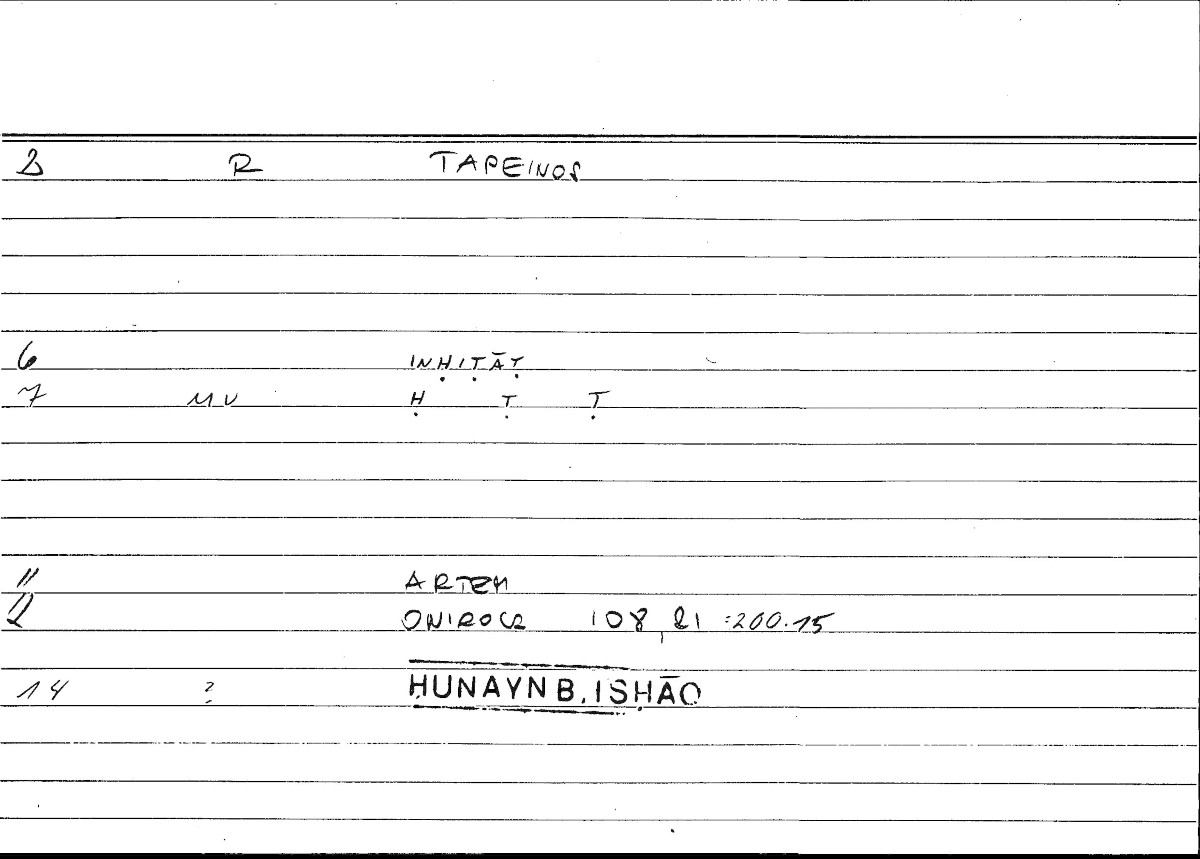 2 R TAPEINOS
6 INḤIṬĀṬ
7 MU Ḥ Ṭ Ṭ
11 ARTEM
12 ONIROCR 108,21 :200.15
14 ? ḤUNAYN B. ISḤĀQ